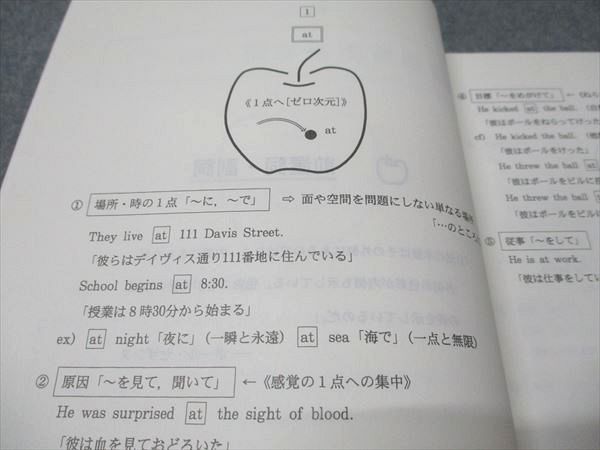 1
at
《1点へ[ゼロ次元]》
at
① 場所・時の1点「～に，～で」 ⇨ 面や空間を問題にしない単なる場所
「…のところ
They live at 111 Davis Street.
「彼らはデイヴィス通り111番地に住んでいる」
School begins at 8:30.
「授業は8時30分から始まる」
ex) at night「夜に」(一瞬と永遠) at sea「海で」(一点と無限)
② 原因「～を見て，聞いて」 ←《感覚の1点への集中》
He was surprised at the sight of blood.
「彼は血を見ておどろいた」
④ 目標「～をめがけて」 ← 《ねら
He kicked at the ball.
「彼はボールをねらってけった
cf) He kicked the ball.
「彼はボールをけった」
He threw the ball at
「彼はボールをビルに
He threw the ball
「彼はボールをビルに
⑤ 従事「～をして」
He is at work.
「彼は仕事をしてい